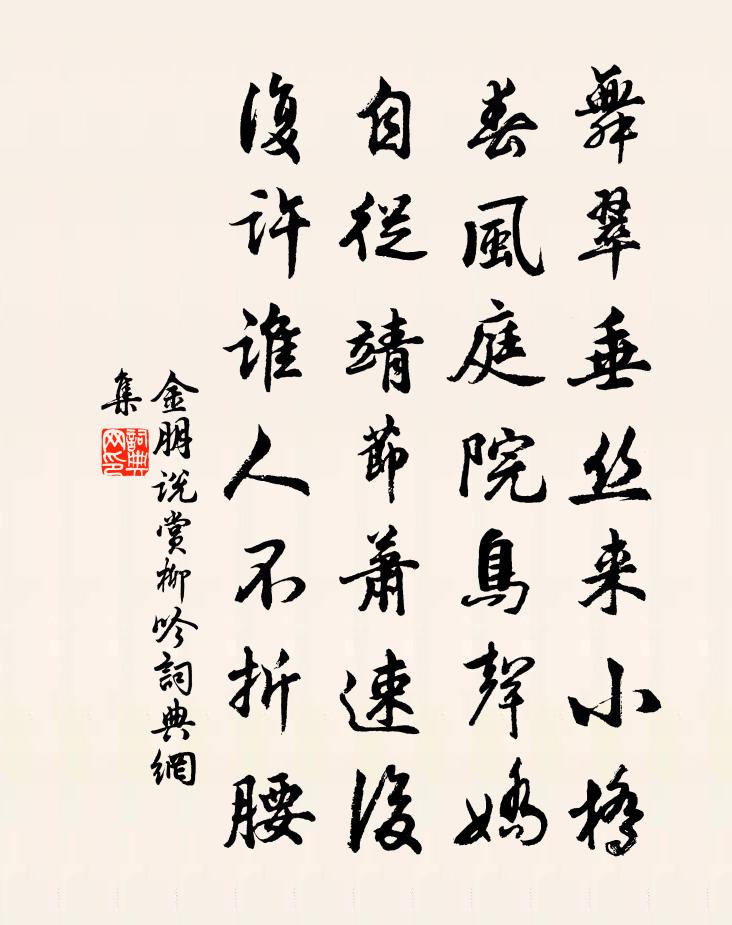 舞翠垂丝来小橋
春風庭院鳥聲嬌
自從靖節蕭速後
復许谁人不折腰
金朋说賞柳吟詞典網
集
詞典网印